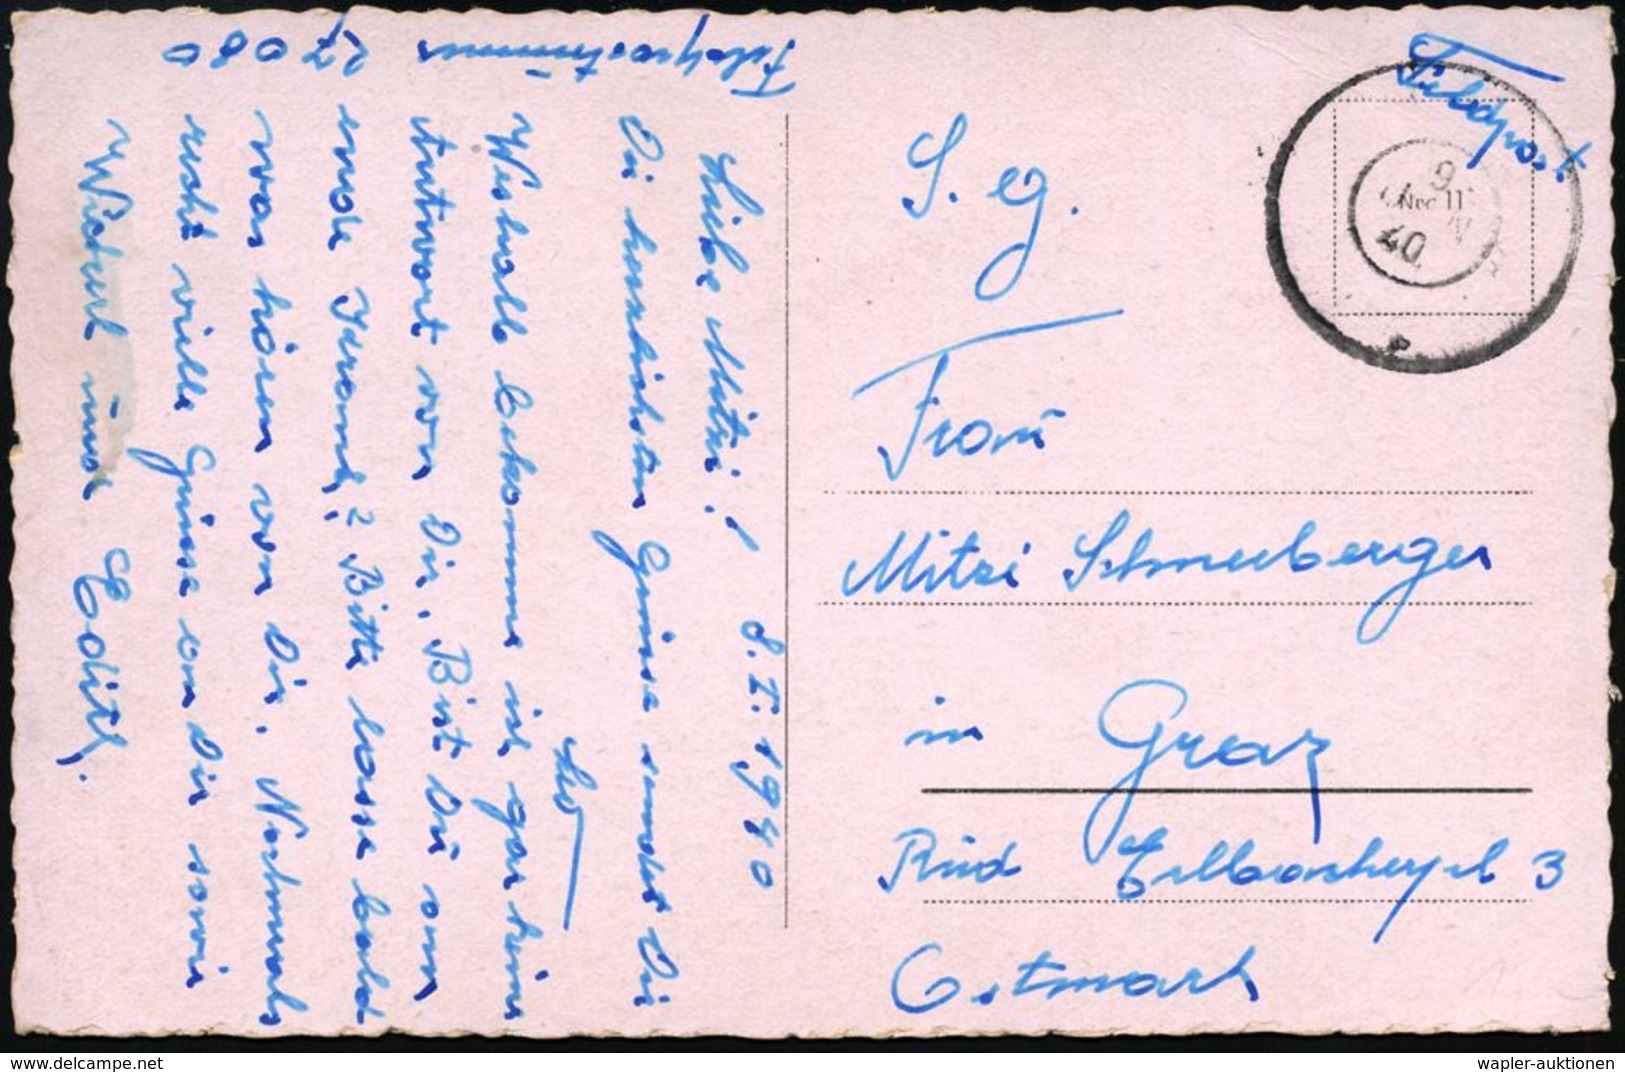 Feldpostnummer
27080
8. I. 1940
Liebe Mitzi!
Die herzlichsten Grüsse sendet Dir
Leo
Weshalb bekomme ich gar keine
Antwort von Dir, Bist Du am
ende Krank? Bitte lasse bald
was hören von Dir. Nochmals
recht viele Grüsse an Dir sowie
Wickerl und Edith.
Feldpost
9
40
S. g.
Frau
Mitzi Schneeberger
in Graz
Ried 3
Ostmark
www.delcampe.net
wapler-auktionen